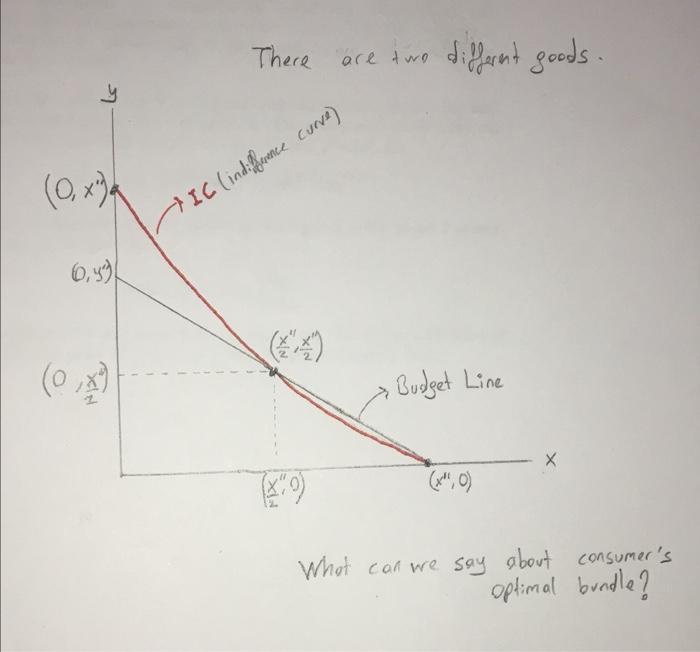 There are two different goods.
y
IC (indifference curve)
(0, x")
(0, y")
(x"/2, x"/2)
(0, x"/2)
Budget Line
x
(x"/2, 0)
(x", 0)
What can we say about consumer's
optimal bundle?